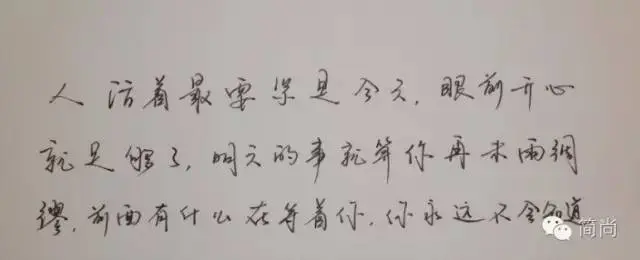 人活着最要紧是今天,眼前开心
就足够了,明天的事就算你再未雨绸
缪,前面有什么在等着你,你永远不会知道
简尚